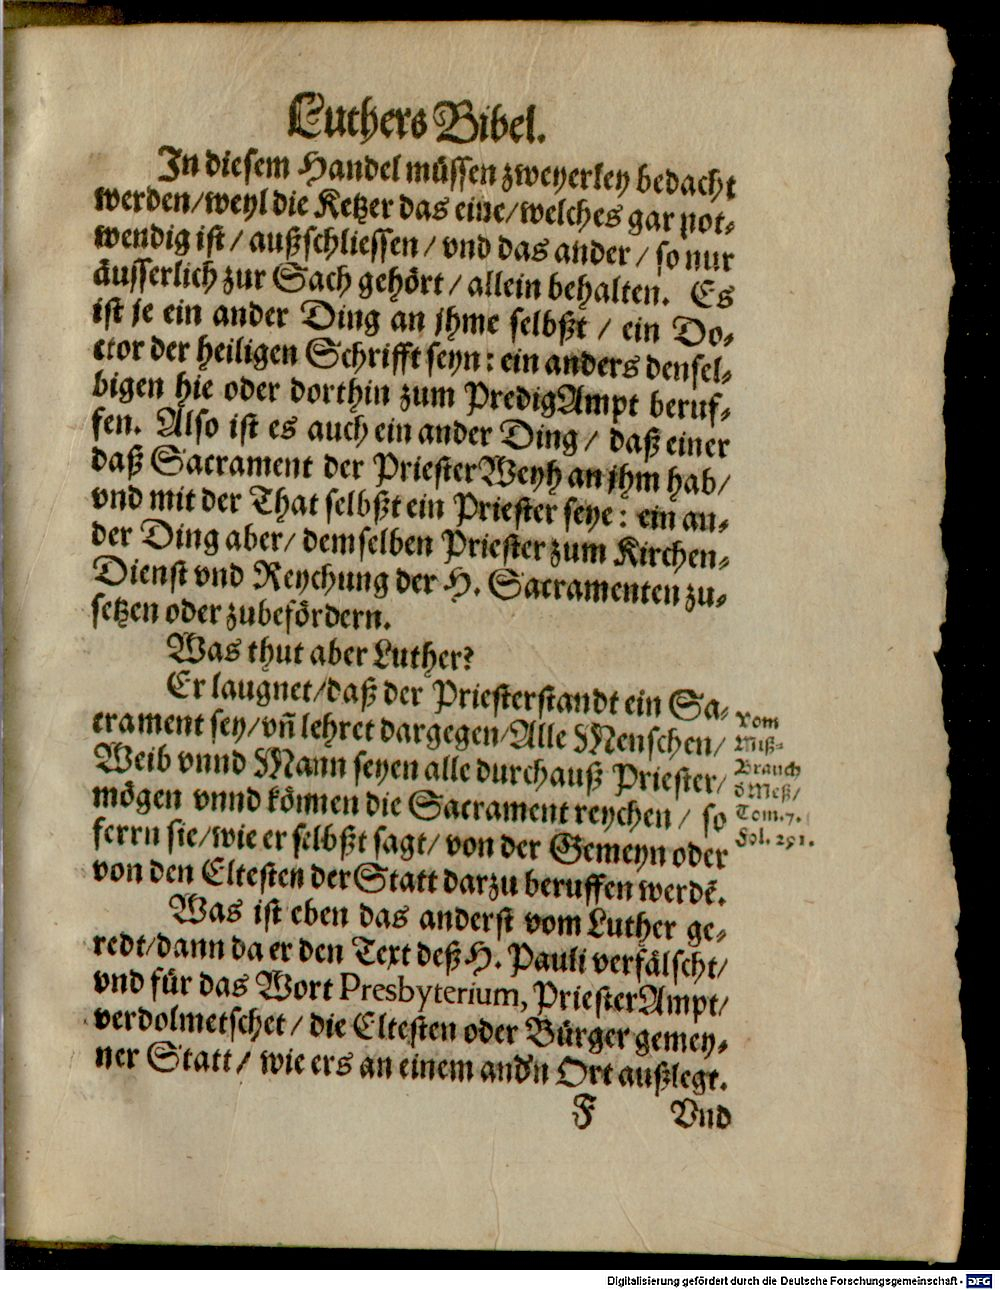 Luthers Bibel.
In diesem Handel müssen zweyerley bedacht
werden/weyl die Ketzer das eine/welches gar not⸗
wendig ist / außschliessen / vnd das ander / so nur
äusserlich zur Sach gehört / allein behalten. Es
ist je ein ander Ding an jhme selbßt / ein Do⸗
ctor der heiligen Schrifft seyn: ein anders densel⸗
bigen hie oder dorthin zum PredigAmpt beruf⸗
fen. Also ist es auch ein ander Ding / daß einer
daß Sacrament der PriesterWeyh an jhm hab/
vnd mit der That selbßt ein Priester seye: ein an⸗
der Ding aber/ demselben Priester zum Kirchen⸗
Dienst vnd Reychung der H. Sacramenten zu⸗
setzen oder zubefördern.
Was thut aber Luther?
Er laugnet/daß der Priesterstandt ein Sa⸗
crament sey/vñ lehret dargegen/Alle Menschen/
Weib vnnd Mann seyen alle durchauß Priester/
mögen vnnd können die Sacrament reychen / so
ferrn sie/wie er selbßt sagt/ von der Gemeyn oder
von den Eltesten der Statt darzu beruffen werdẽ.
Vom
Miß⸗
Brauch
d Meß/
Tom. 7.
Fol. 291.
Was ist eben das anderst vom Luther ge⸗
redt/dann da er den Text deß H. Pauli verfälscht/
vnd für das Wort Presbyterium, PriesterAmpt/
verdolmetschet / die Eltesten oder Bürger gemey⸗
ner Statt / wie ers an einem andn Ort außlegt.
F Vnd
Digitalisierung gefördert durch die Deutsche Forschungsgemeinschaft - DFG